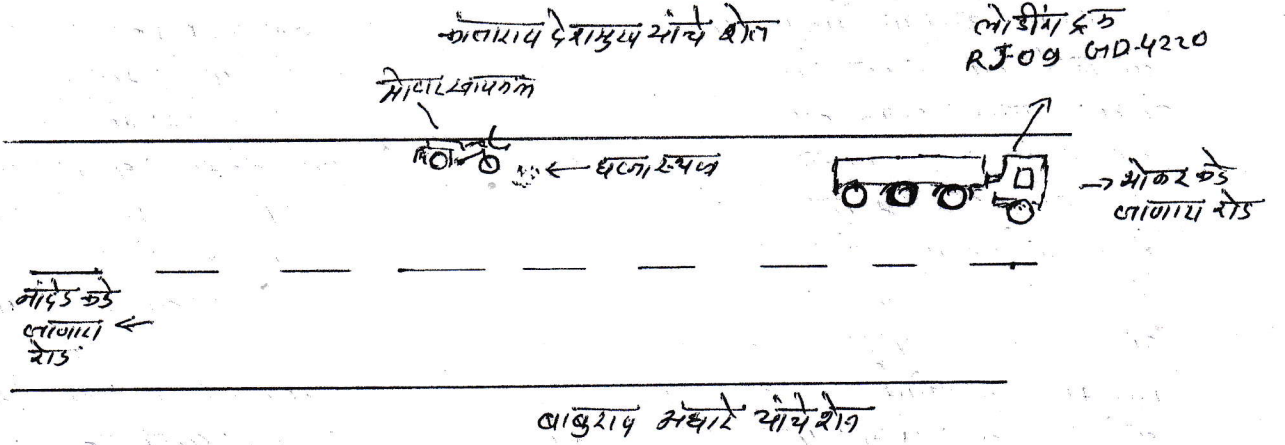 देशमुख यांचे शेत
लोडींग ट्रक
RJ-09 GD-4220
मोटारसायकल
← घटनास्थळ
→ भोकर कडे
जाणारा रोड
नांदेड कडे
जाणारा ←
रोड
बाबुराव यांचे शेत